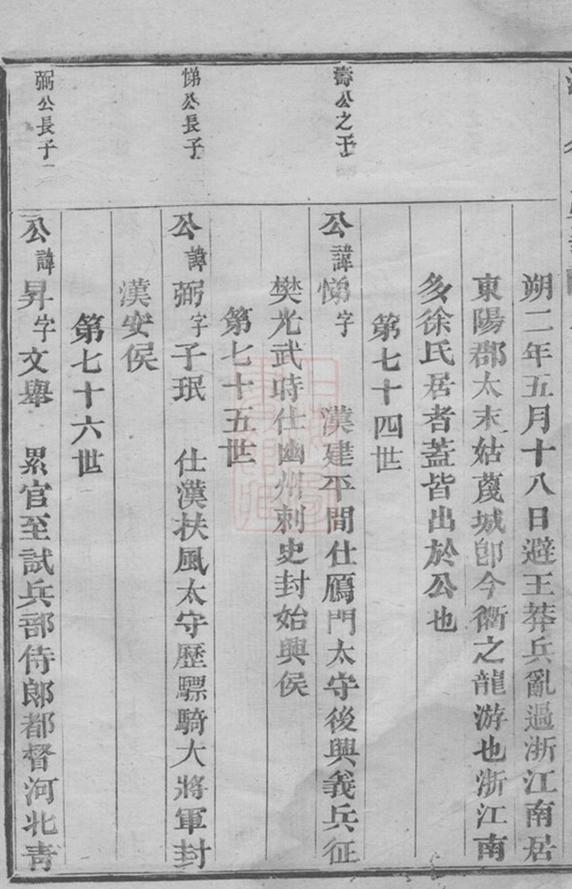 朔二年五月十八日避王莽兵亂過浙江南居
東陽郡太末姑蔑城卽今衢之龍游也浙江南
多徐氏居者蓋皆出於公也
第七十四世
壽公之子
公諱悌字 漢建平間仕鴈門太守後興義兵征
樊光武時仕幽州刺史封始興侯
第七十五世
悌公長子
公諱弼字子珉 仕漢扶風太守歷驃騎大將軍封
漢安侯
第七十六世
弼公長子一
公諱昇字文舉 累官至試兵部侍郎都督河北靑